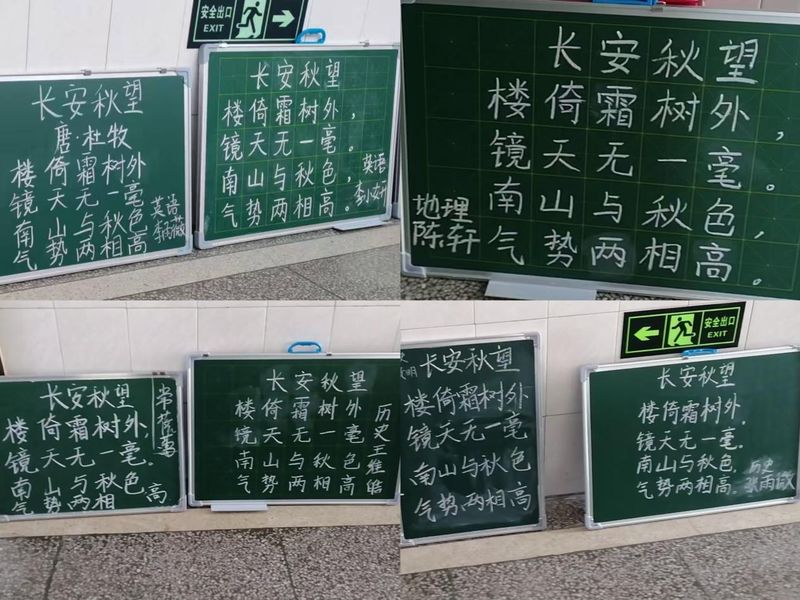 安全出口
EXIT
长安秋望
唐·杜牧
楼倚霜树外
镜天无一毫
南山与秋色
气势两相高
英语
长安秋望
楼倚霜树外，
镜天无一毫。
南山与秋色，
气势两相高。
英语
长安秋望
楼倚霜树外，
镜天无一毫。
南山与秋色，
气势两相高。
地理
陈轩
长安秋望
楼倚霜树外
镜天无一毫。
南山与秋色
气势两相高
长安秋望
楼倚霜树外
镜天无一毫
南山与秋色
气势两相高
历史王维皓
长安秋望
楼倚霜树外
镜天无一毫
南山与秋色
气势两相高
安全出口
EXIT
长安秋望
楼倚霜树外，
镜天无一毫。
南山与秋色，
气势两相高。
历史